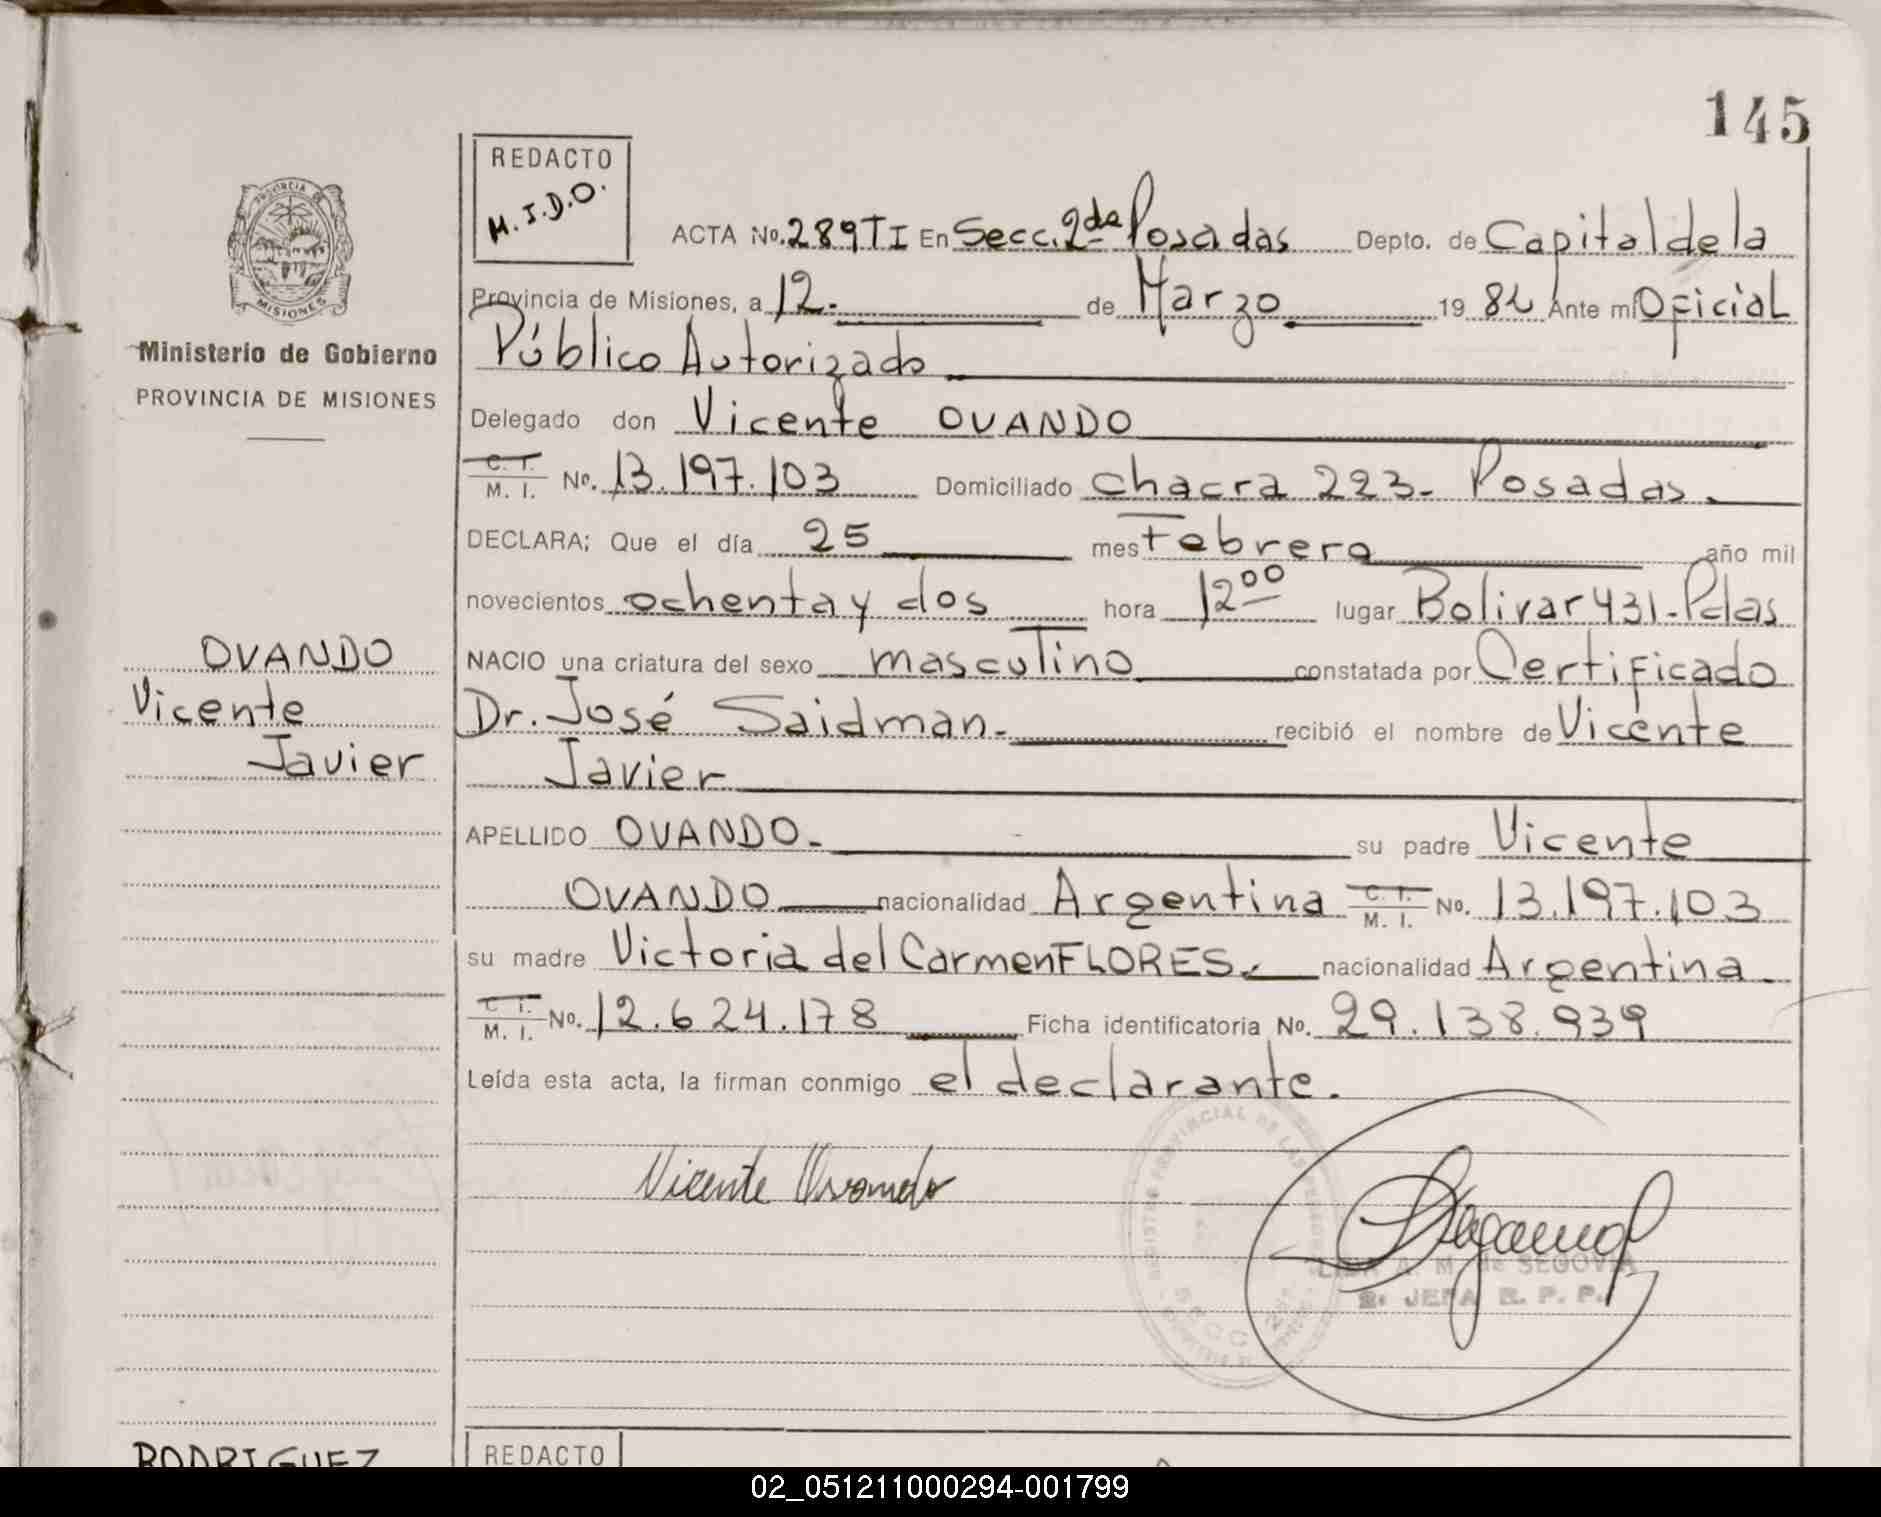 145
REDACTO
M.I.D.O.
PROVINCIA DE
MISIONES
Ministerio de Gobierno
PROVINCIA DE MISIONES
ACTA No. 289TI En Secc. 2da Posadas Depto. de Capital de la
Provincia de Misiones, a 12.- de Marzo 1982 Ante mí Oficial
Público Autorizado
Delegado don Vicente OVANDO
C. I. M. I. No. 13.197.103 Domiciliado chacra 223- Posadas.
DECLARA; Que el día 25 mes Febrero año mil
novecientos ochenta y dos hora 12 00 lugar Bolivar 431-Pdas
NACIO una criatura del sexo masculino constatada por Certificado
Dr. José Saidman.- recibió el nombre de Vicente
Javier
APELLIDO OVANDO.- su padre Vicente
OVANDO nacionalidad Argentina C. I. M. I. No. 13.197.103
su madre Victoria del Carmen FLORES.- nacionalidad Argentina
C. I. M. I. No. 12.624.178 Ficha identificatoria No. 29.138.939
Leída esta acta, la firman conmigo el declarante.
OVANDO
Vicente
Javier
Vicente Ovando
A. M. de SEGOVIA
JEFA R. P. P.
RODRIGUEZ
REDACTO
02_051211000294-001799